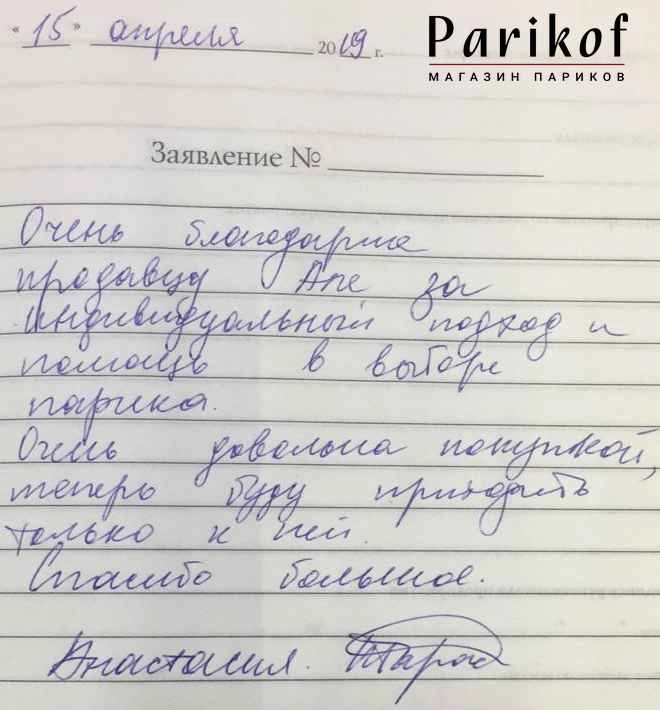 "15" апреля 2019 г.
Parikof
МАГАЗИН ПАРИКОВ
Заявление №
Очень благодарна
продавцу Ане за
индивидуальный подход и
помощь в выборе
парика.
Очень довольна покупкой,
теперь буду приходить
только к ней.
Спасибо большое.
Анастасия.